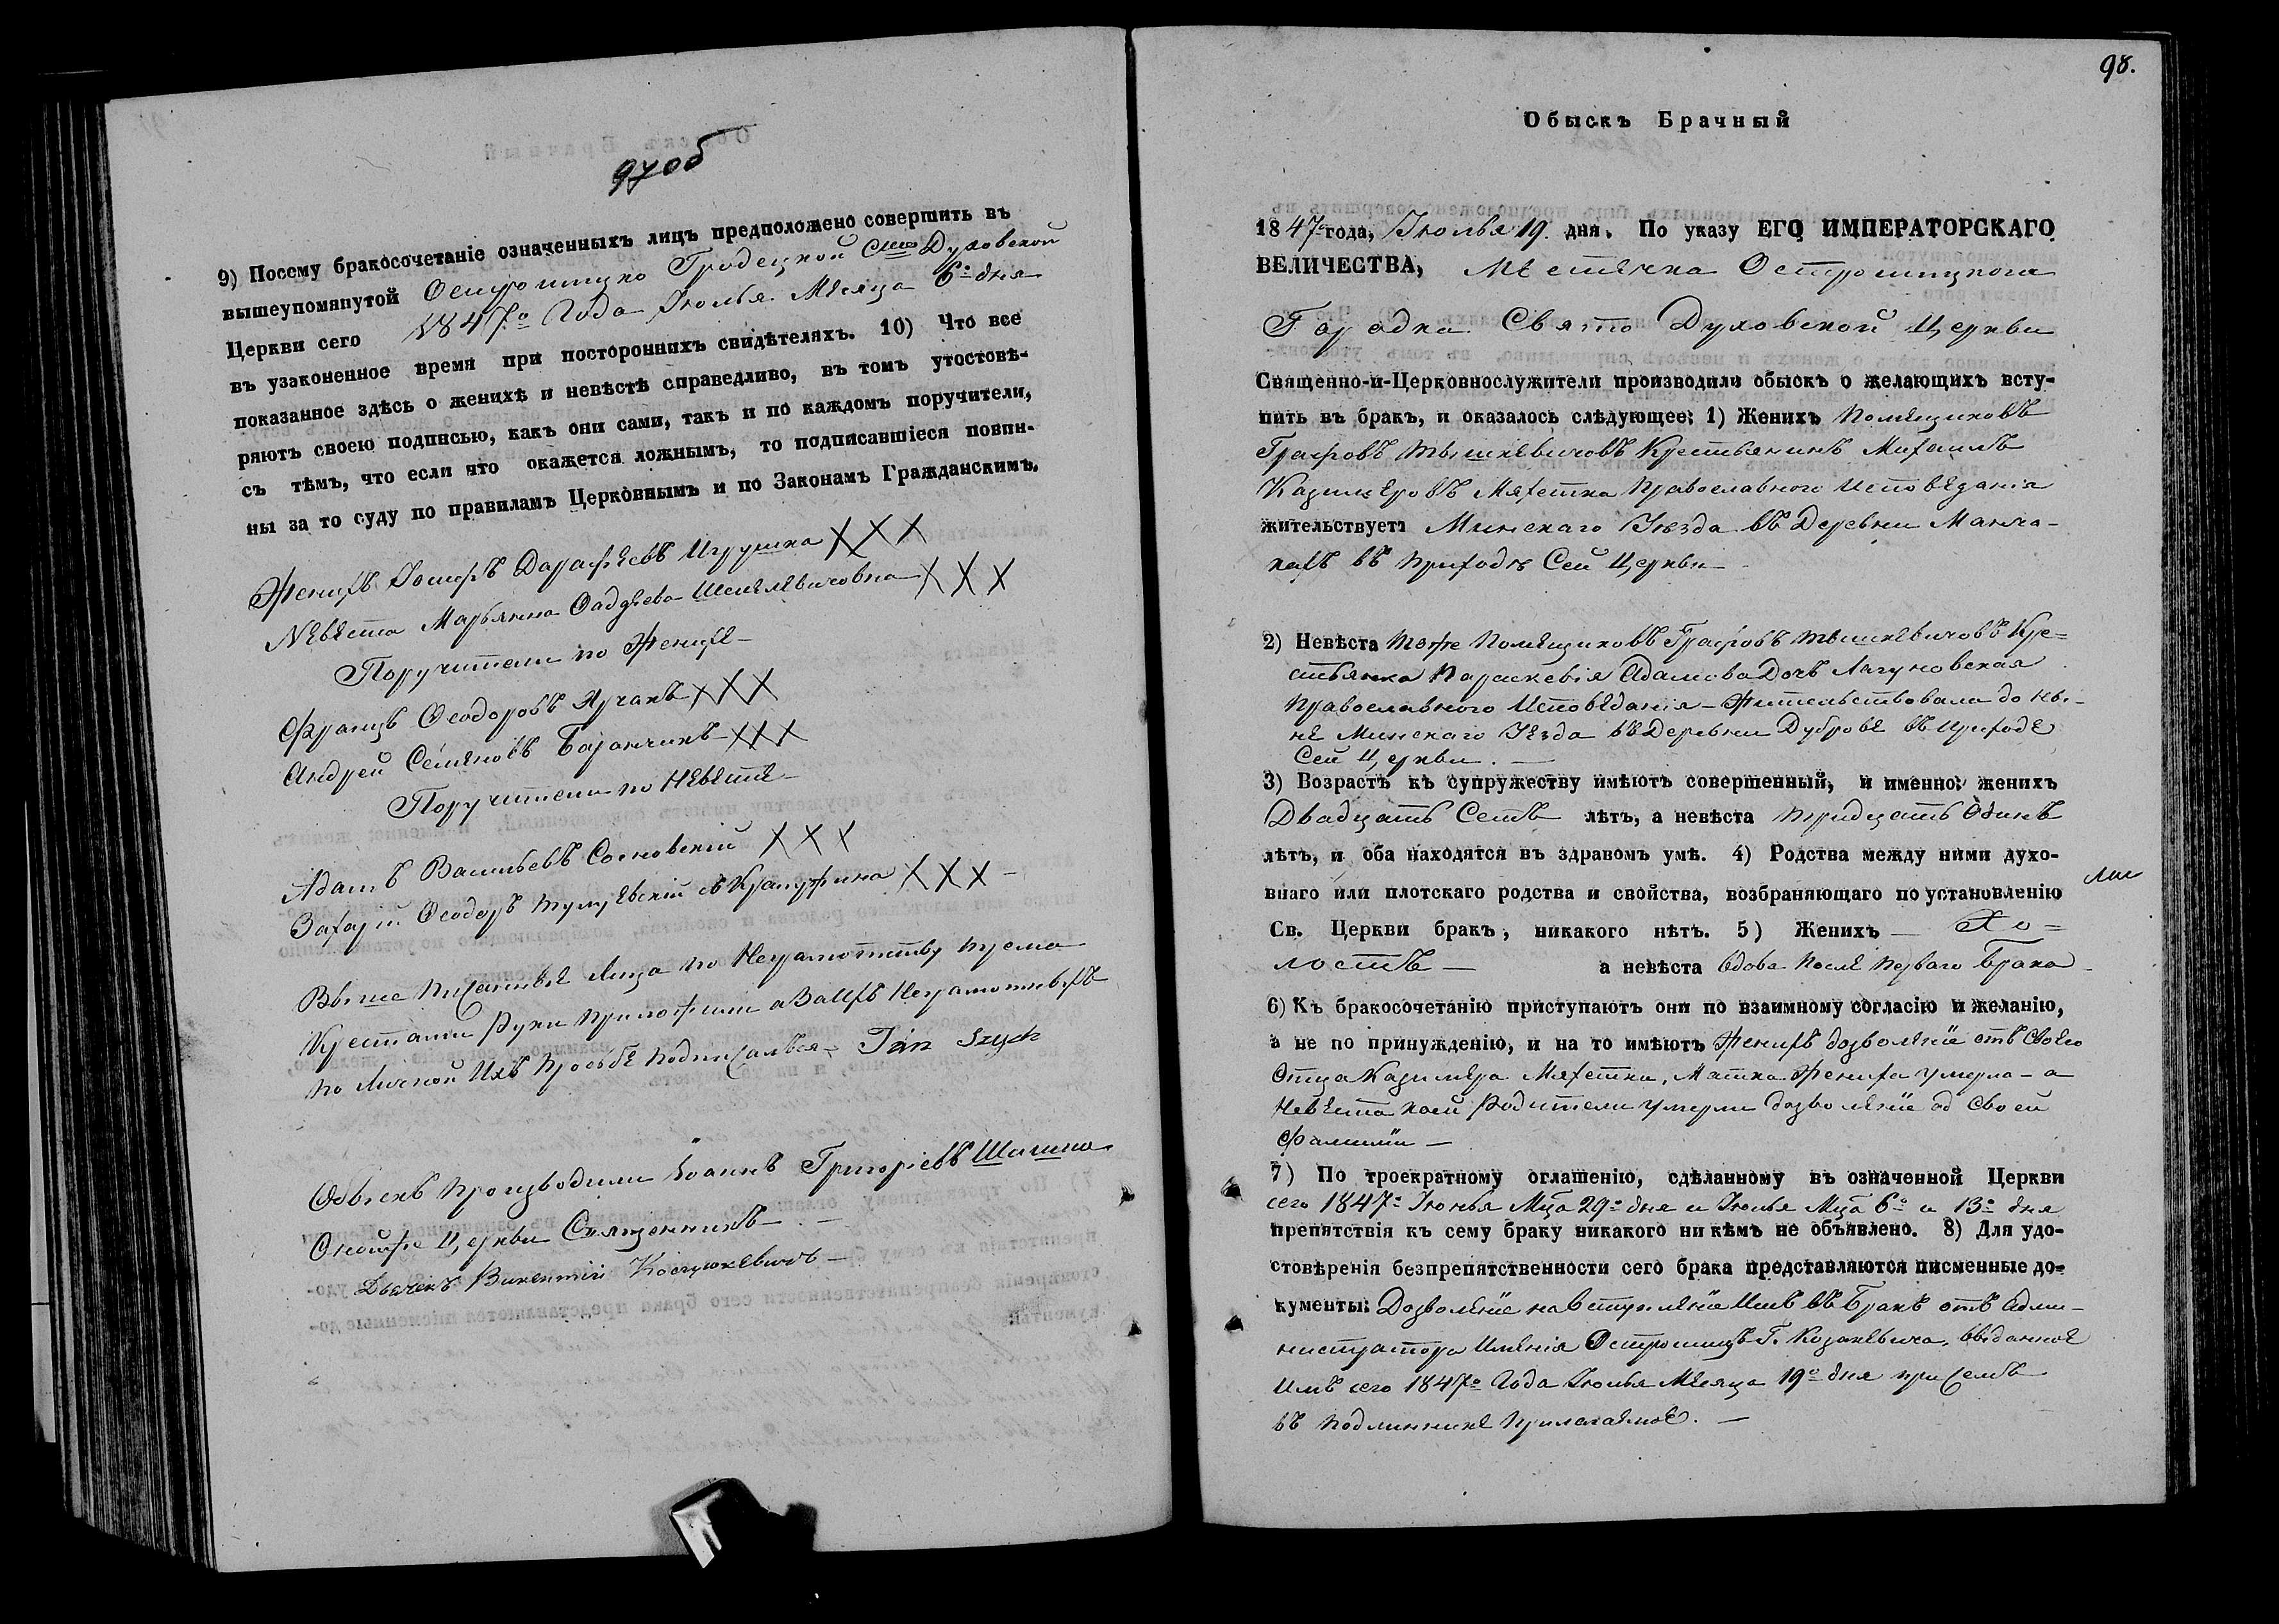 97 об
9) Посему бракосочетаніе означенныхъ лицъ предположено совершить въ
вышеупомянутой Остромицко Гродецкой Сто Духовской
Церкви сего 1847о Года Июлья Месяца 6о дня
въ узаконенное время при постороннихъ свидѣтеляхъ. 10) Что все
показанное здѣсь о женихѣ и невѣстѣ справедливо, въ томъ утостовѣ-
ряютъ своею подписью, какъ они сами, такъ и по каждомъ поручители,
съ тѣмъ, что если что окажется ложнымъ, то подписавшіеся повин-
ны за то суду по правиламъ Церковнымъ и по Законамъ Гражданскимъ.
Женихъ Іосифъ Дарафѣевъ Игрушка XXX
Невѣста Марьянна Фадѣева XXX
Поручители по Женихе
Францъ Феодоровъ Ярчакъ XXX
Андрей Семѣновъ Баранчикъ XXX
Поручители по Невѣстѣ
Адамъ Васильевъ Сосновскій XXX
Захарій Феодоръ XXX
Выше писанныѣ Лица по Неграмотству трема
Крестами Руки приложили а За Ихъ Неграмотныхъ
по Личной Ихъ просьбѣ подписался Jan Szych
Обыскъ производили Іоаннъ Григоріевъ
Онойже Церкви Священникъ
Дьячекъ Викентій
98.
Обыскъ Брачный
1847о года, Июлья 19 дня. По указу ЕГО ИМПЕРАТОРСКАГО
ВЕЛИЧЕСТВА, Мѣстечка Остромицкого
Городка Свято Духовской Церкви
Священно-и-Церковнослужители производили обыскъ о желающихъ всту-
пить въ брак, и оказалось слѣдующее: 1) Женихъ Помѣщиковъ
Графовъ Тышкѣвичовъ Крестьянинъ Михаилъ
Казимѣровъ Мяхетка Православного Исповѣданія
жительствуетъ Минскаго Уѣзда въ Деревни Манча-
кахъ въ приходѣ Сей Церкви
2) Невѣста тоже Помѣщиковъ Графовъ Тышкѣвичовъ Кре=
стьянка Параскевія Адамова Дочъ Лагуновская
Православного Исповѣданія – Жительствовала до ны-
нѣ Минскаго Уѣзда въ Деревни Дубровѣ въ Приходѣ
Сей Церкви. —
3) Возрастъ къ супружеству имѣютъ совершенный, и именно: женихъ
Двадцать Семъ лѣтъ, а невѣста тридцать Одинъ
лѣтъ, и оба находятся въ здравомъ умѣ. 4) Родства между ними духо-
внаго или плотскаго родства и свойства, возбраняющаго по установленію
Св. Церкви бракъ, никакого нѣтъ. 5) Женихъ — Хо=
лостъ — а невѣста вдова послѣ перваго Брака
6) Къ бракосочетанію приступаютъ они по взаимному согласію и желанію,
а не по принужденію, и на то имѣютъ Женихъ дозволѣніе отъ Своего
Отца Казимѣра Мяхетки, Матка Жениха умерла – а
Невѣста коей Родители умерли дозволѣніе од Своей
Фамиліи —
7) По троекратному оглашенію, сдѣланному въ означенной Церкви
сего 1847о Июнья Мца 29о дня и Июлья Мца 6о и 13о дня
препятствія къ сему браку никакого ни кѣмъ не объявлено. 8) Для удо-
стовѣренія безпрепятственности сего брака представляются писменные до-
кументы: Дозволѣніе на Вступлѣніе Имъ въ Бракъ отъ Адми-
нистратора Имѣнія Остромицъ Г. Козакѣвича, выданноѣ
Имъ сего 1847о Года Июлья Мѣсяца 19о дня при Семъ
въ подлинникѣ прилагаѣмоѣ. —